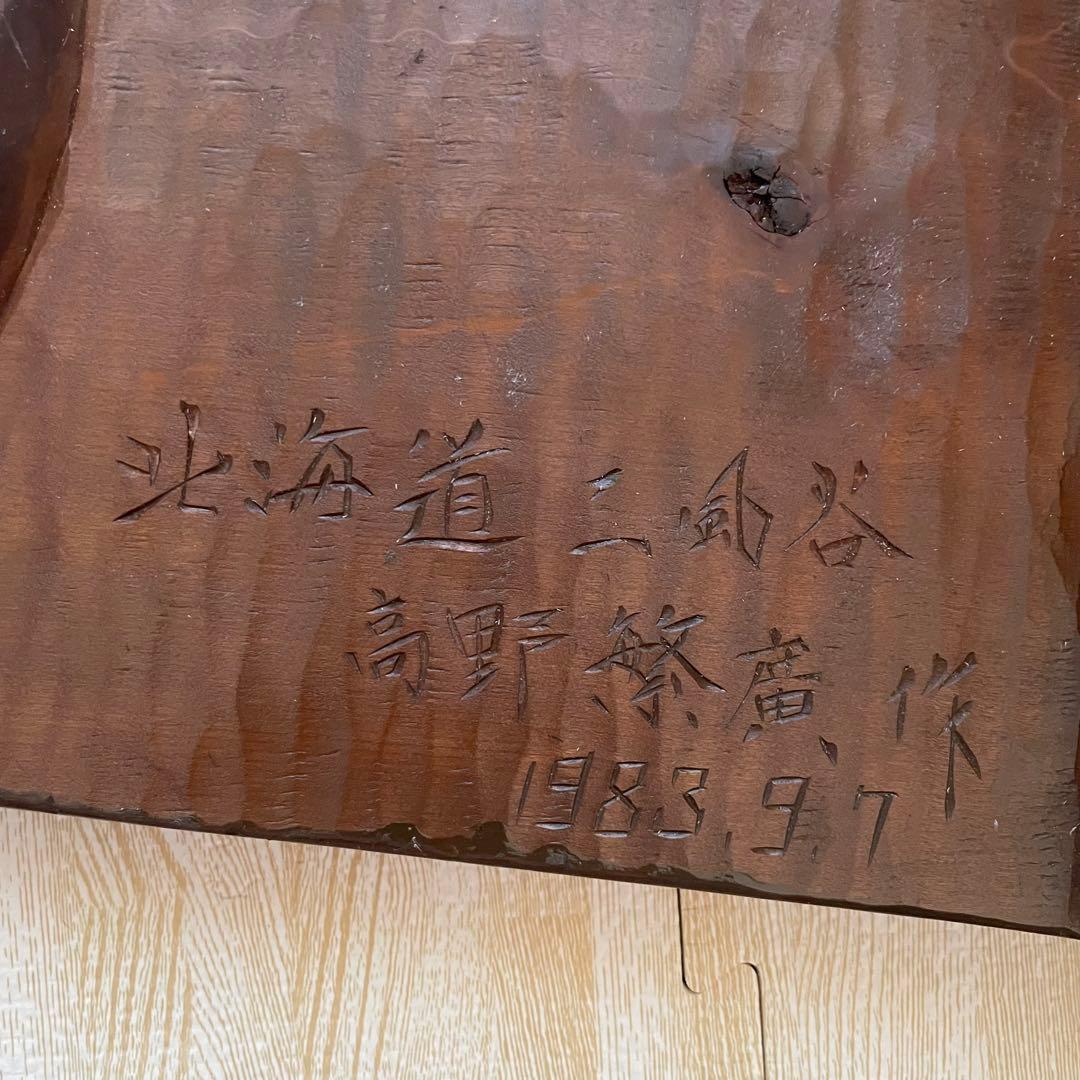 北海道 二風谷
高野繁廣 作
1983.9.7